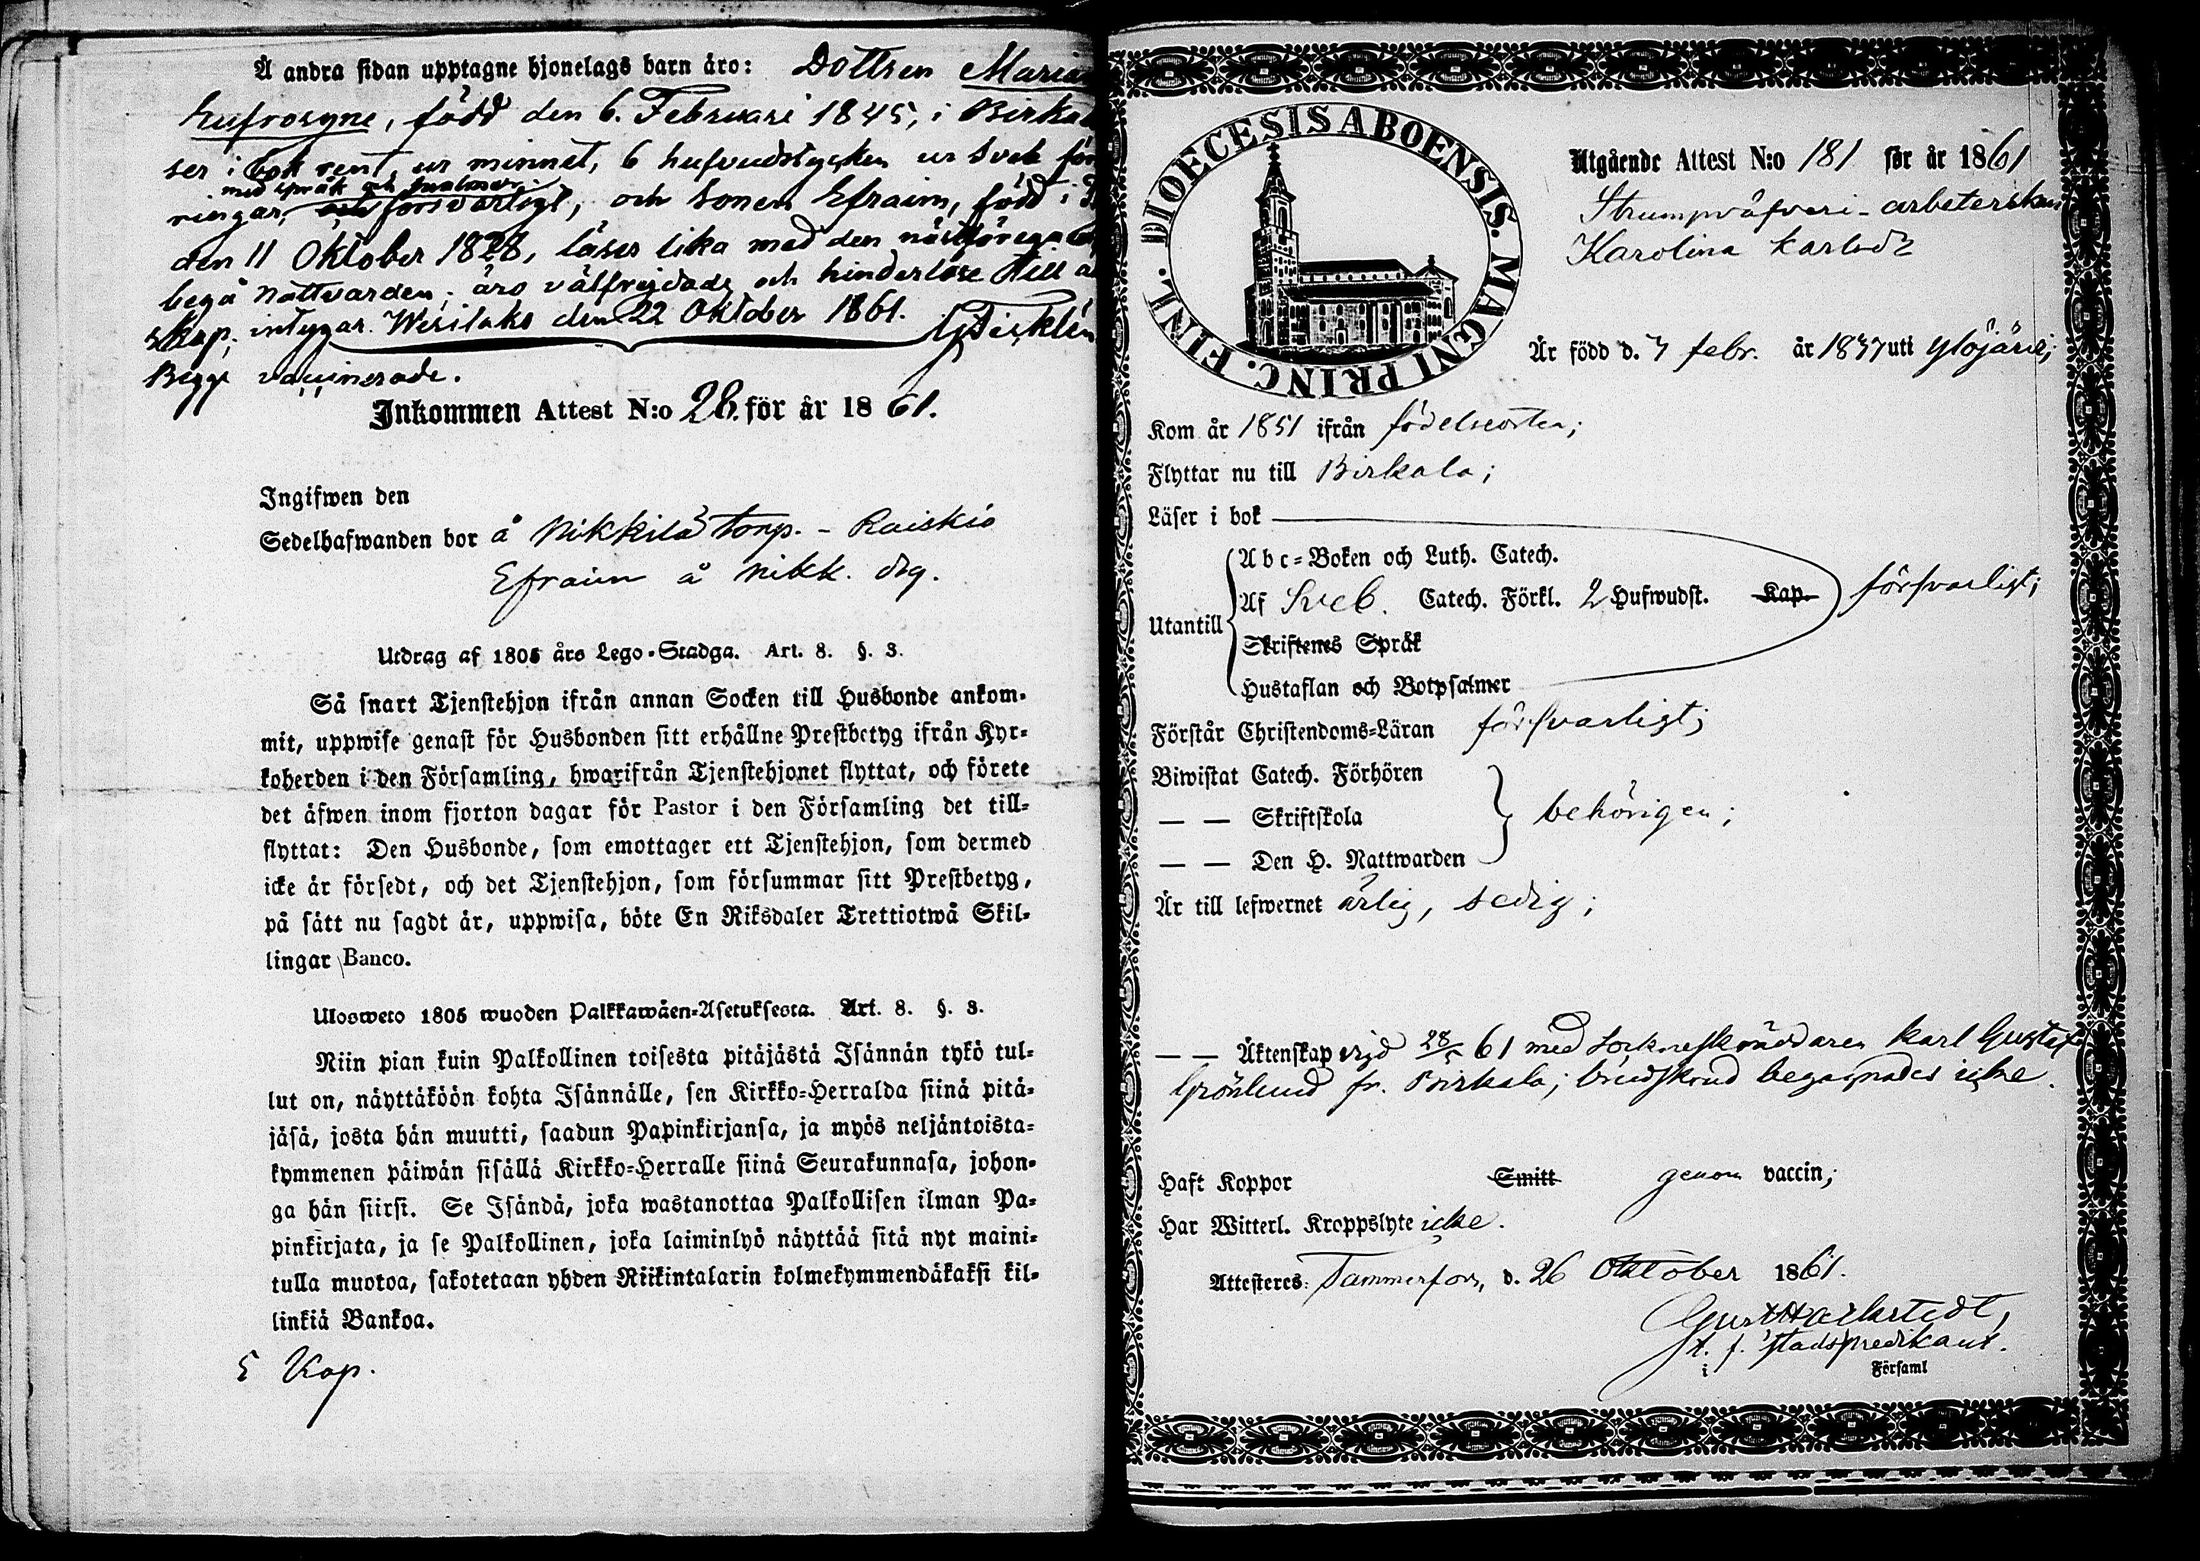 Å andra sidan upptagne hjonelags barn äro: Dottren Maria
Eufrosyne, född den 6. Februari 1845, i Birka
ser i bok rent, ur minnet, 6 hufvudstycken ur Sveb för
med språk och
ringar, och försvarligt, och sonen Efraim, född i
den 11 Oktober 1828, läser lika med den
begå nattvarden; äro välfrejdade och hinderlöse till
skap; intygar. Wesilaks den 22 Oktober 1861.
Begge vaccinerade.
Inkommen Attest N:o 28. för år 1861.
Ingifwen den
Sedelhafwanden bor å Nikkilä torp. - Raiskio
Efraim å Nikk. drg.
Utdrag af 1805 års Lego-Stadga. Art. 8. §. 3.
Så snart Tjenstehjon ifrån annan Socken till Husbonde ankom-
mit, uppwise genast för Husbonden sitt erhållne Prestbetyg ifrån Kyr-
koherden i den Församling, hwarifrån Tjenstehjonet flyttat, och förete
det äfwen inom fjorton dagar för Pastor i den Församling det till-
flyttat: Den Husbonde, som emottager ett Tjenstehjon, som dermed
icke är försedt, och det Tjenstehjon, som försummar sitt Prestbetyg,
på sätt nu sagdt är, uppwisa, böte En Riksdaler Trettiotwå Skil-
lingar Banco.
Ulosweto 1805 wuoden Palkkawäen-Asetuksesta. Art. 8. §. 3.
Niin pian kuin Palkollinen toisesta pitäjästä Isännän tykö tul-
lut on, näyttäköön kohta Isännälle, sen Kirkko-Herralda siinä pitä-
jäsä, josta hän muutti, saadun Papinkirjansa, ja myös neljäntoista-
kymmenen päiwän sisällä Kirkko-Herralle siinä Seurakunnasa, johon-
ga hän siirsi. Se Isändä, joka wastanottaa Palkollisen ilman Pa-
pinkirjata, ja se Palkollinen, joka laiminlyö näyttää sitä nyt maini-
tulla muotoa, sakotetaan yhden Riikintalarin kolmekymmendäkaksi kil-
linkiä Bankoa.
5 Kop.
DIOECESIS ABOENSIS. MAGNI PRINC. FINL.
Utgående Attest N:o 181 för år 1861
Strumpväfveri-arbeterskan
Karolina Karlsdr
Är född d. 7 febr. år 1837 uti Ylöjärvi;
Kom år 1851 ifrån födelseorten;
Flyttar nu till Birkala;
Läser i bok
Abc-Boken och Luth. Catech.
Utantill Af Sveb. Catech. Förkl. 2 Hufwudst. Kap. försvarligt;
Skriftenes Språk
Hustaflan och Botpsalmer
Förstår Christendoms-Läran försvarligt;
Biwistat Catech. Förhören
— — Skriftskola behörigen;
— — Den H. Nattwarden
Är till lefwernet ärlig, sedig;
— — Äktenskap vigd 28/5 61 med Sockneskräddaren Karl Gustaf
Grönlund fr. Birkala; brudskrud begagnades icke.
Haft Koppor Smitt genom vaccin;
Har Witterl. Kroppslyte icke.
Attesteres: Tammerfors, d. 26 Oktober 1861.
t. f. stadspredikant.
i Församl